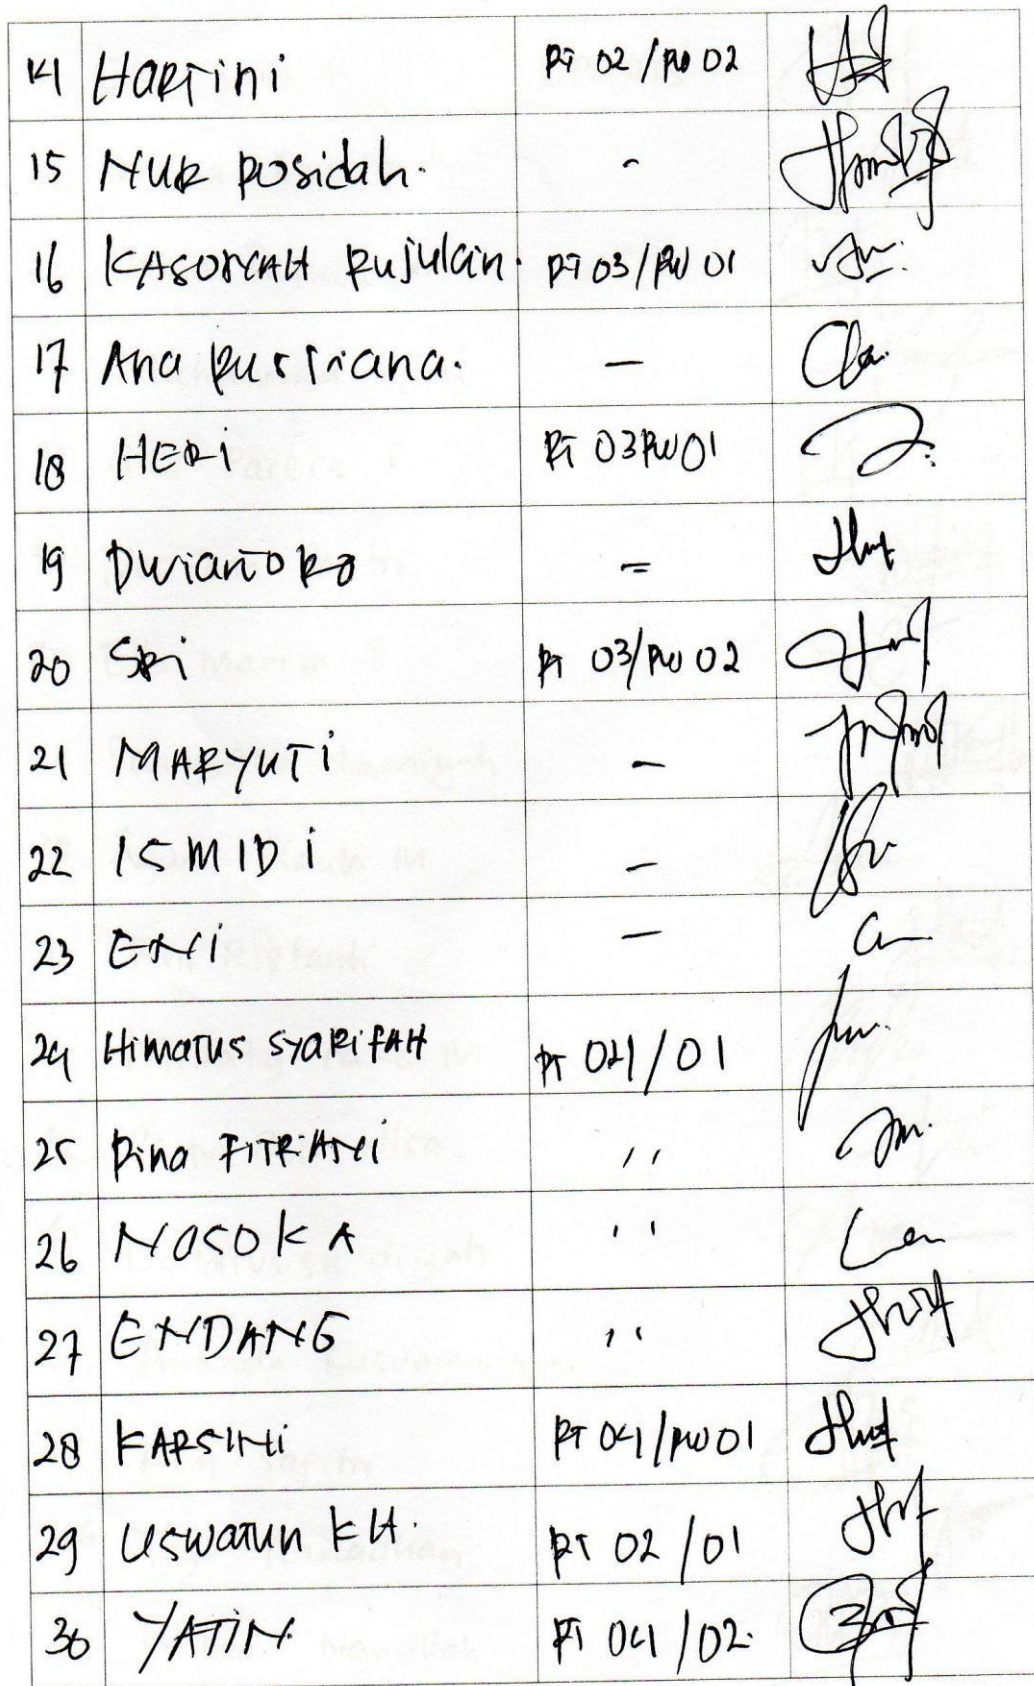 14 Hartini RT 02/RW 02
15 NUR Rosidah. -
16 KASONAH Rujukan. RT 03/RW 01
17 Ana Pustiana. -
18 HERi RT 03 RW 01
19 Dwiantoro =
20 SRi RT 03/RW 02
21 MARYUTi -
22 ISMIDi -
23 ENi -
24 Himatus SyaRifAH RT 04/01
25 Rina FiTRiANi ''
26 NOSOKA ''
27 ENDANG ''
28 KARSiNi RT 04/RW 01
29 Uswatun KH. RT 02/01
30 YATiN. RT 04/02.